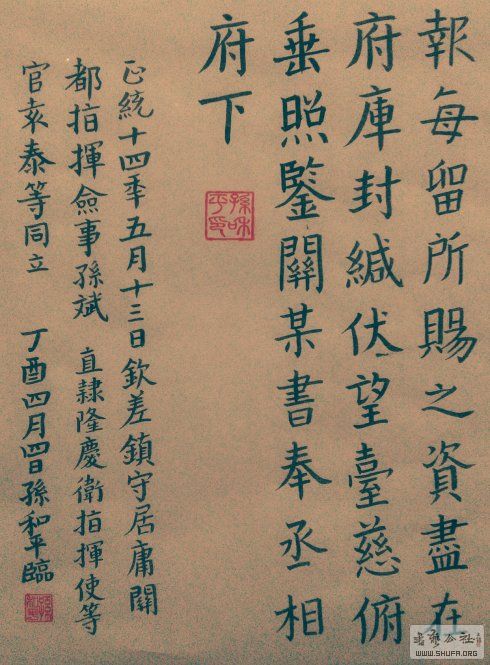 報每留所賜之資盡在
府庫封緘伏望臺慈俯
垂照鑒關某書奉丞相
府下
孫和平印
正統十四年五月十三日欽差鎮守居庸關
都指揮僉事孫斌 直隸隆慶衛指揮使等
官袁泰等同立 丁酉四月四日孫和平臨
WWW.SHUFA.ORG